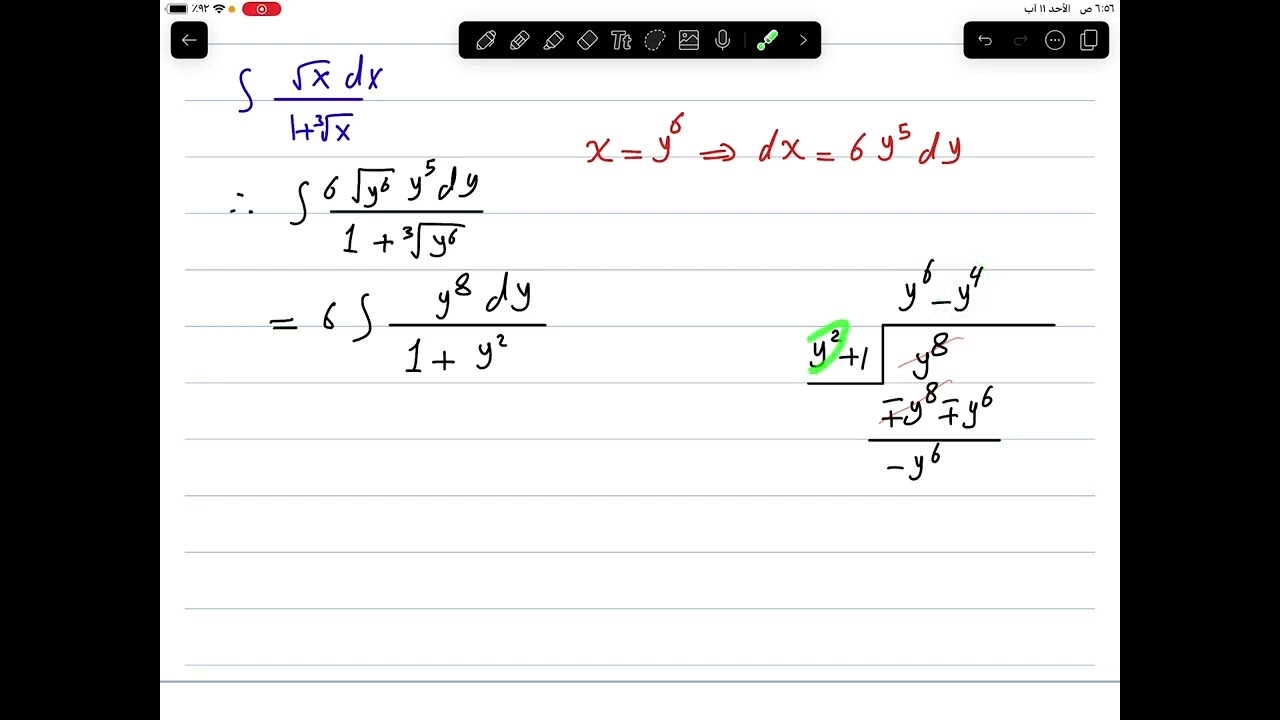 ٪٩٢
٦:٥٦ ص الأحد ١١ آب
Tt
∫ √x dx / (1+∛x)
x = y⁶ ⇒ dx = 6 y⁵ dy
∴ ∫ 6 √y⁶ y⁵ dy / (1 + ∛y⁶)
= 6 ∫ y⁸ dy / (1 + y²)
y⁶ − y⁴
y² + 1 y⁸
∓y⁸ ∓ y⁶
− y⁶